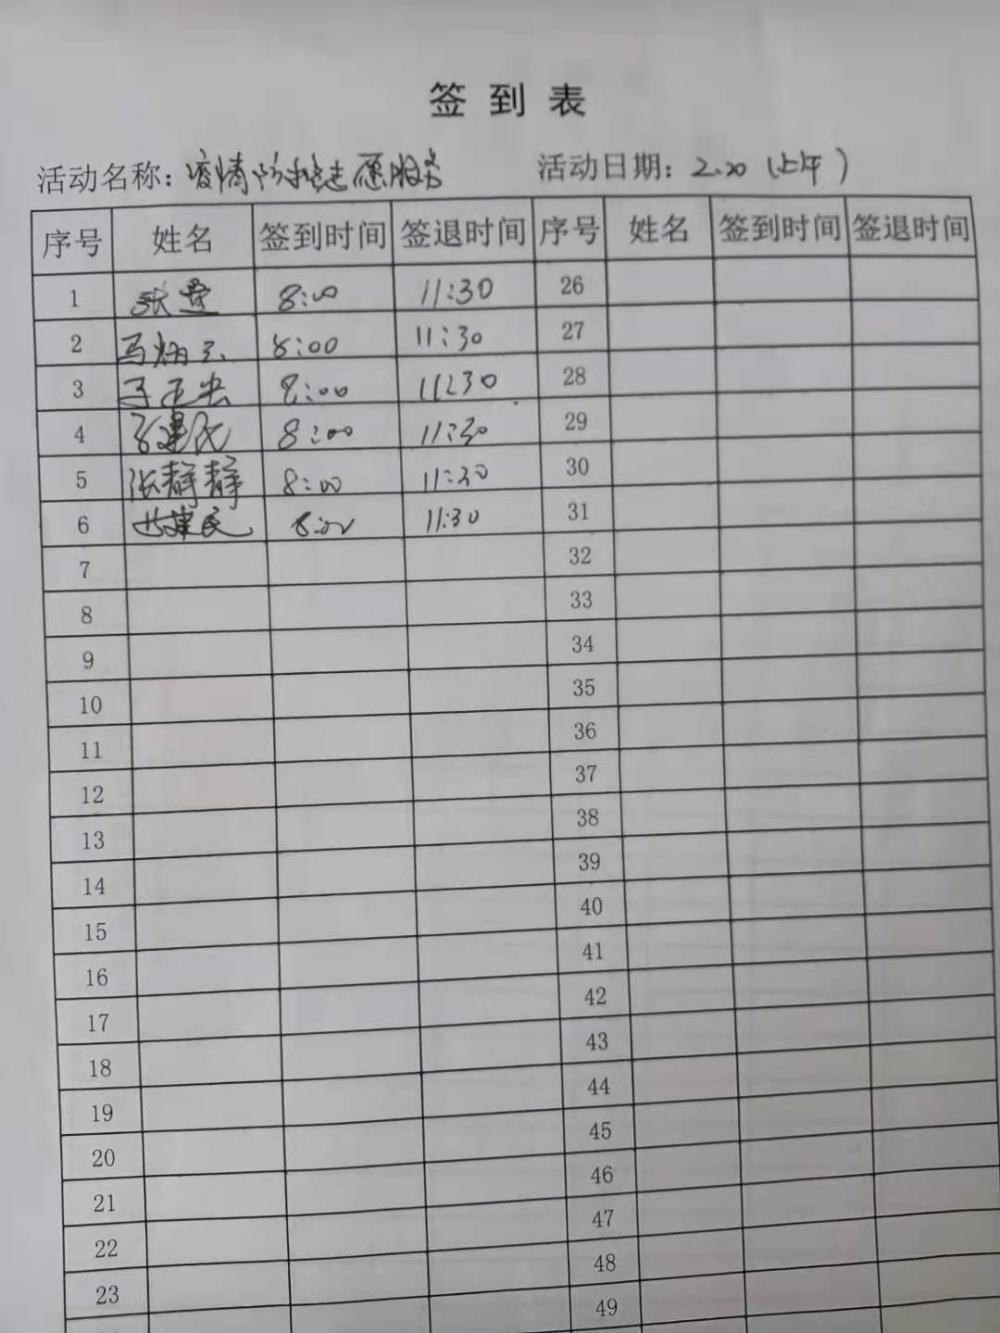 签到表
活动名称：疫情防控志愿服务 活动日期：2.20（上午）
序号 姓名 签到时间 签退时间 序号 姓名 签到时间 签退时间
1 8:00 11:30 26
2 8:00 11:30 27
3 8:00 11:30 28
4 8:00 11:30 29
5 张静静 8:00 11:30 30
6 8:00 11:30 31
7 32
8 33
9 34
10 35
11 36
12 37
13 38
14 39
15 40
16 41
17 42
18 43
19 44
20 45
21 46
22 47
23 48
49